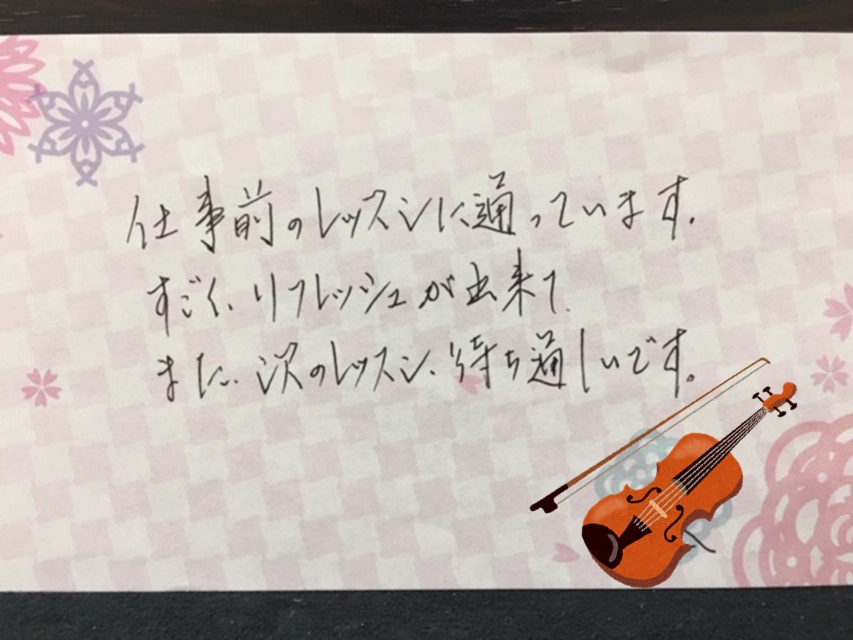 仕事前のレッスンに通っています。
すごく、リフレッシュが出来て
また、次のレッスン、待ち通しいです。